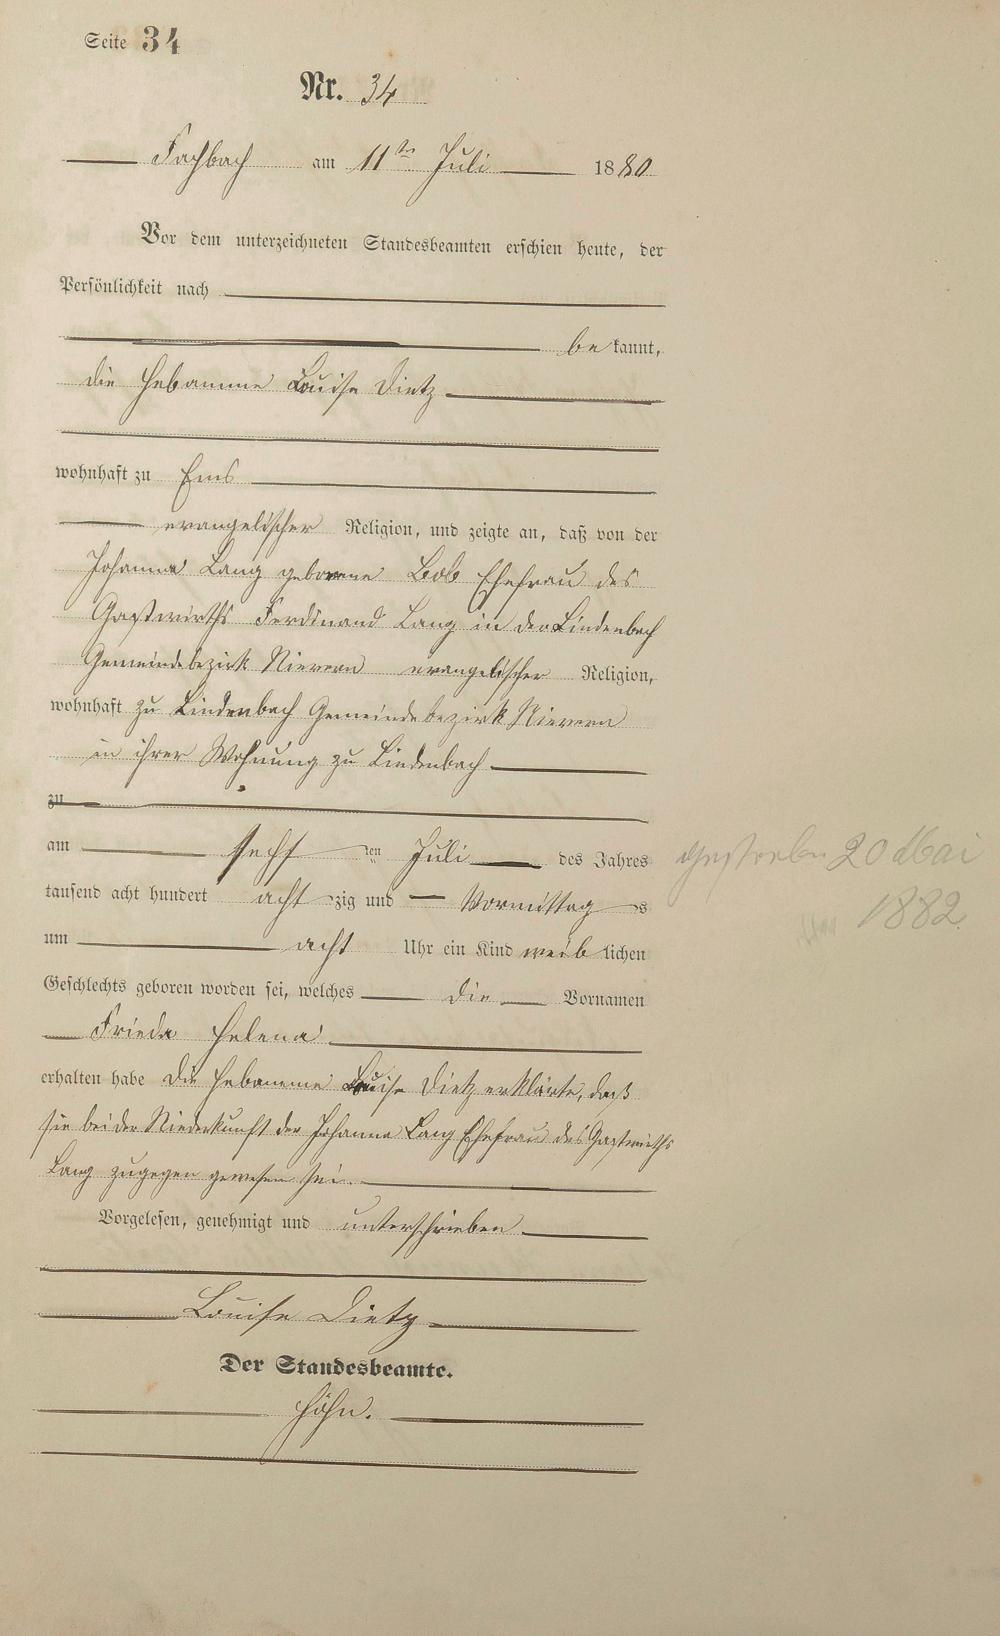 Seite 34
Nr. 34
Fachbach am 11ten Juli 1880
Vor dem unterzeichneten Standesbeamten erschien heute, der
Persönlichkeit nach
bekannt,
die Hebamme Louise Dietz
wohnhaft zu Ems
evangelischer Religion, und zeigte an, daß von der
Johanna Lang geborene Bob Ehefrau des
Gastwirths Ferdinand Lang in der Lindenbach
Gemeindebezirk Nievern evangelischer Religion,
wohnhaft zu Lindenbach Gemeindebezirk Nievern
in ihrer Wohnung zu Lindenbach
zu
am sechsten Juli des Jahres
tausend acht hundert achtzig und Vormittags
um acht Uhr ein Kind weiblichen
Geschlechts geboren worden sei, welches die Vornamen
Frieda Helena
erhalten habe Die Hebamme Louise Dietz erklärte, daß
sie bei der Niederkunft der Johanna Lang Ehefrau des Gastwirths
Lang zugegen gewesen sei.
Vorgelesen, genehmigt und unterschrieben
Louise Dietz
Der Standesbeamte.
Höhn.
gestorben 20 Mai
1882